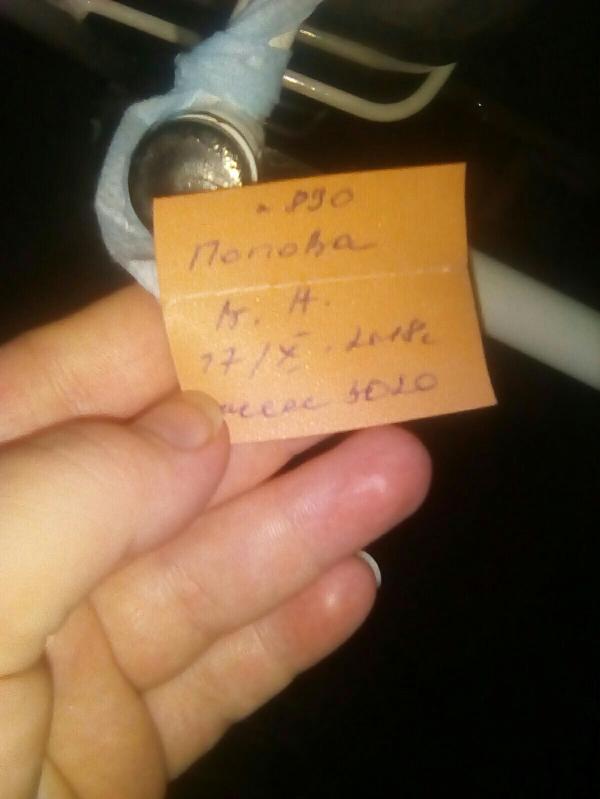 ж 890
Попова
К. Н.
17/X. 2018г
масса 3020